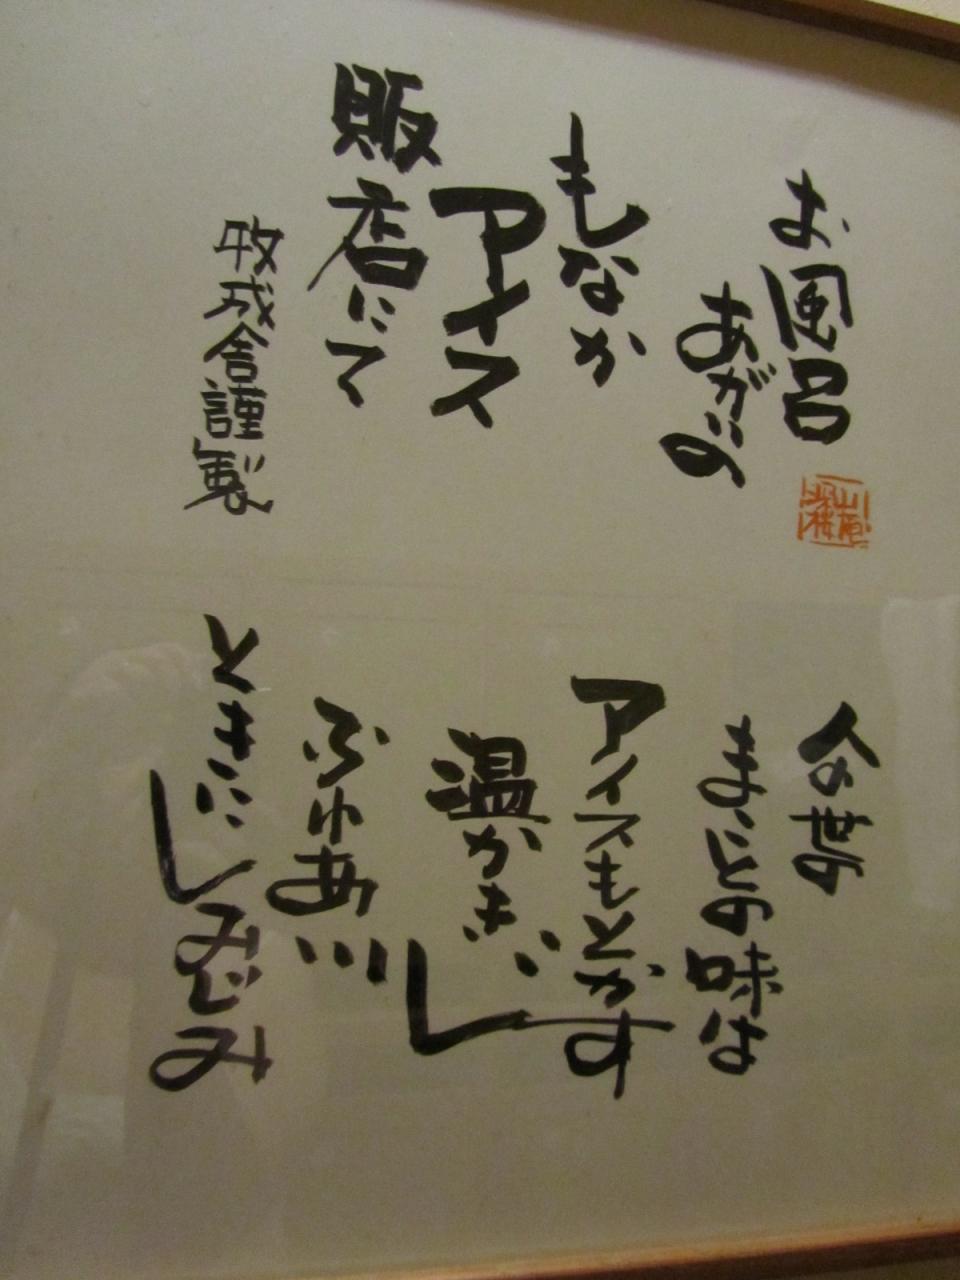 お風呂
あがりの
もなか
アイス
販店にて
牧成舎謹製
人の世の
まことの味は
アイスもとかす
温かき心
ふれあい
ときにしみじみ